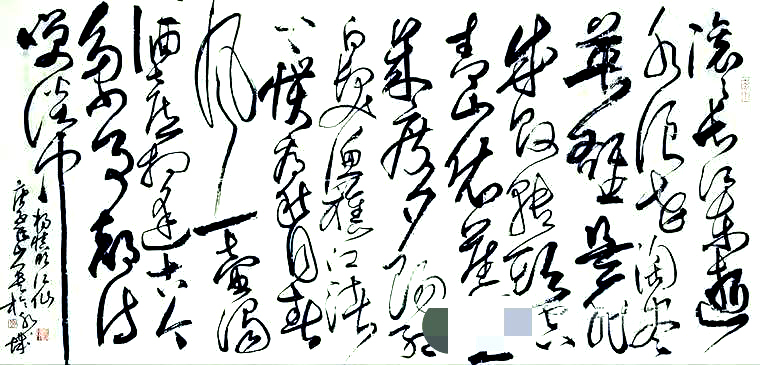 滚滚长江东逝
水浪花淘尽
英雄是非
成败转头空
青山依旧
几度夕阳红
白发渔樵江渚
上惯看秋月春
风一壶浊
酒喜相逢古今
多少事都付
笑谈中
杨慎临江仙